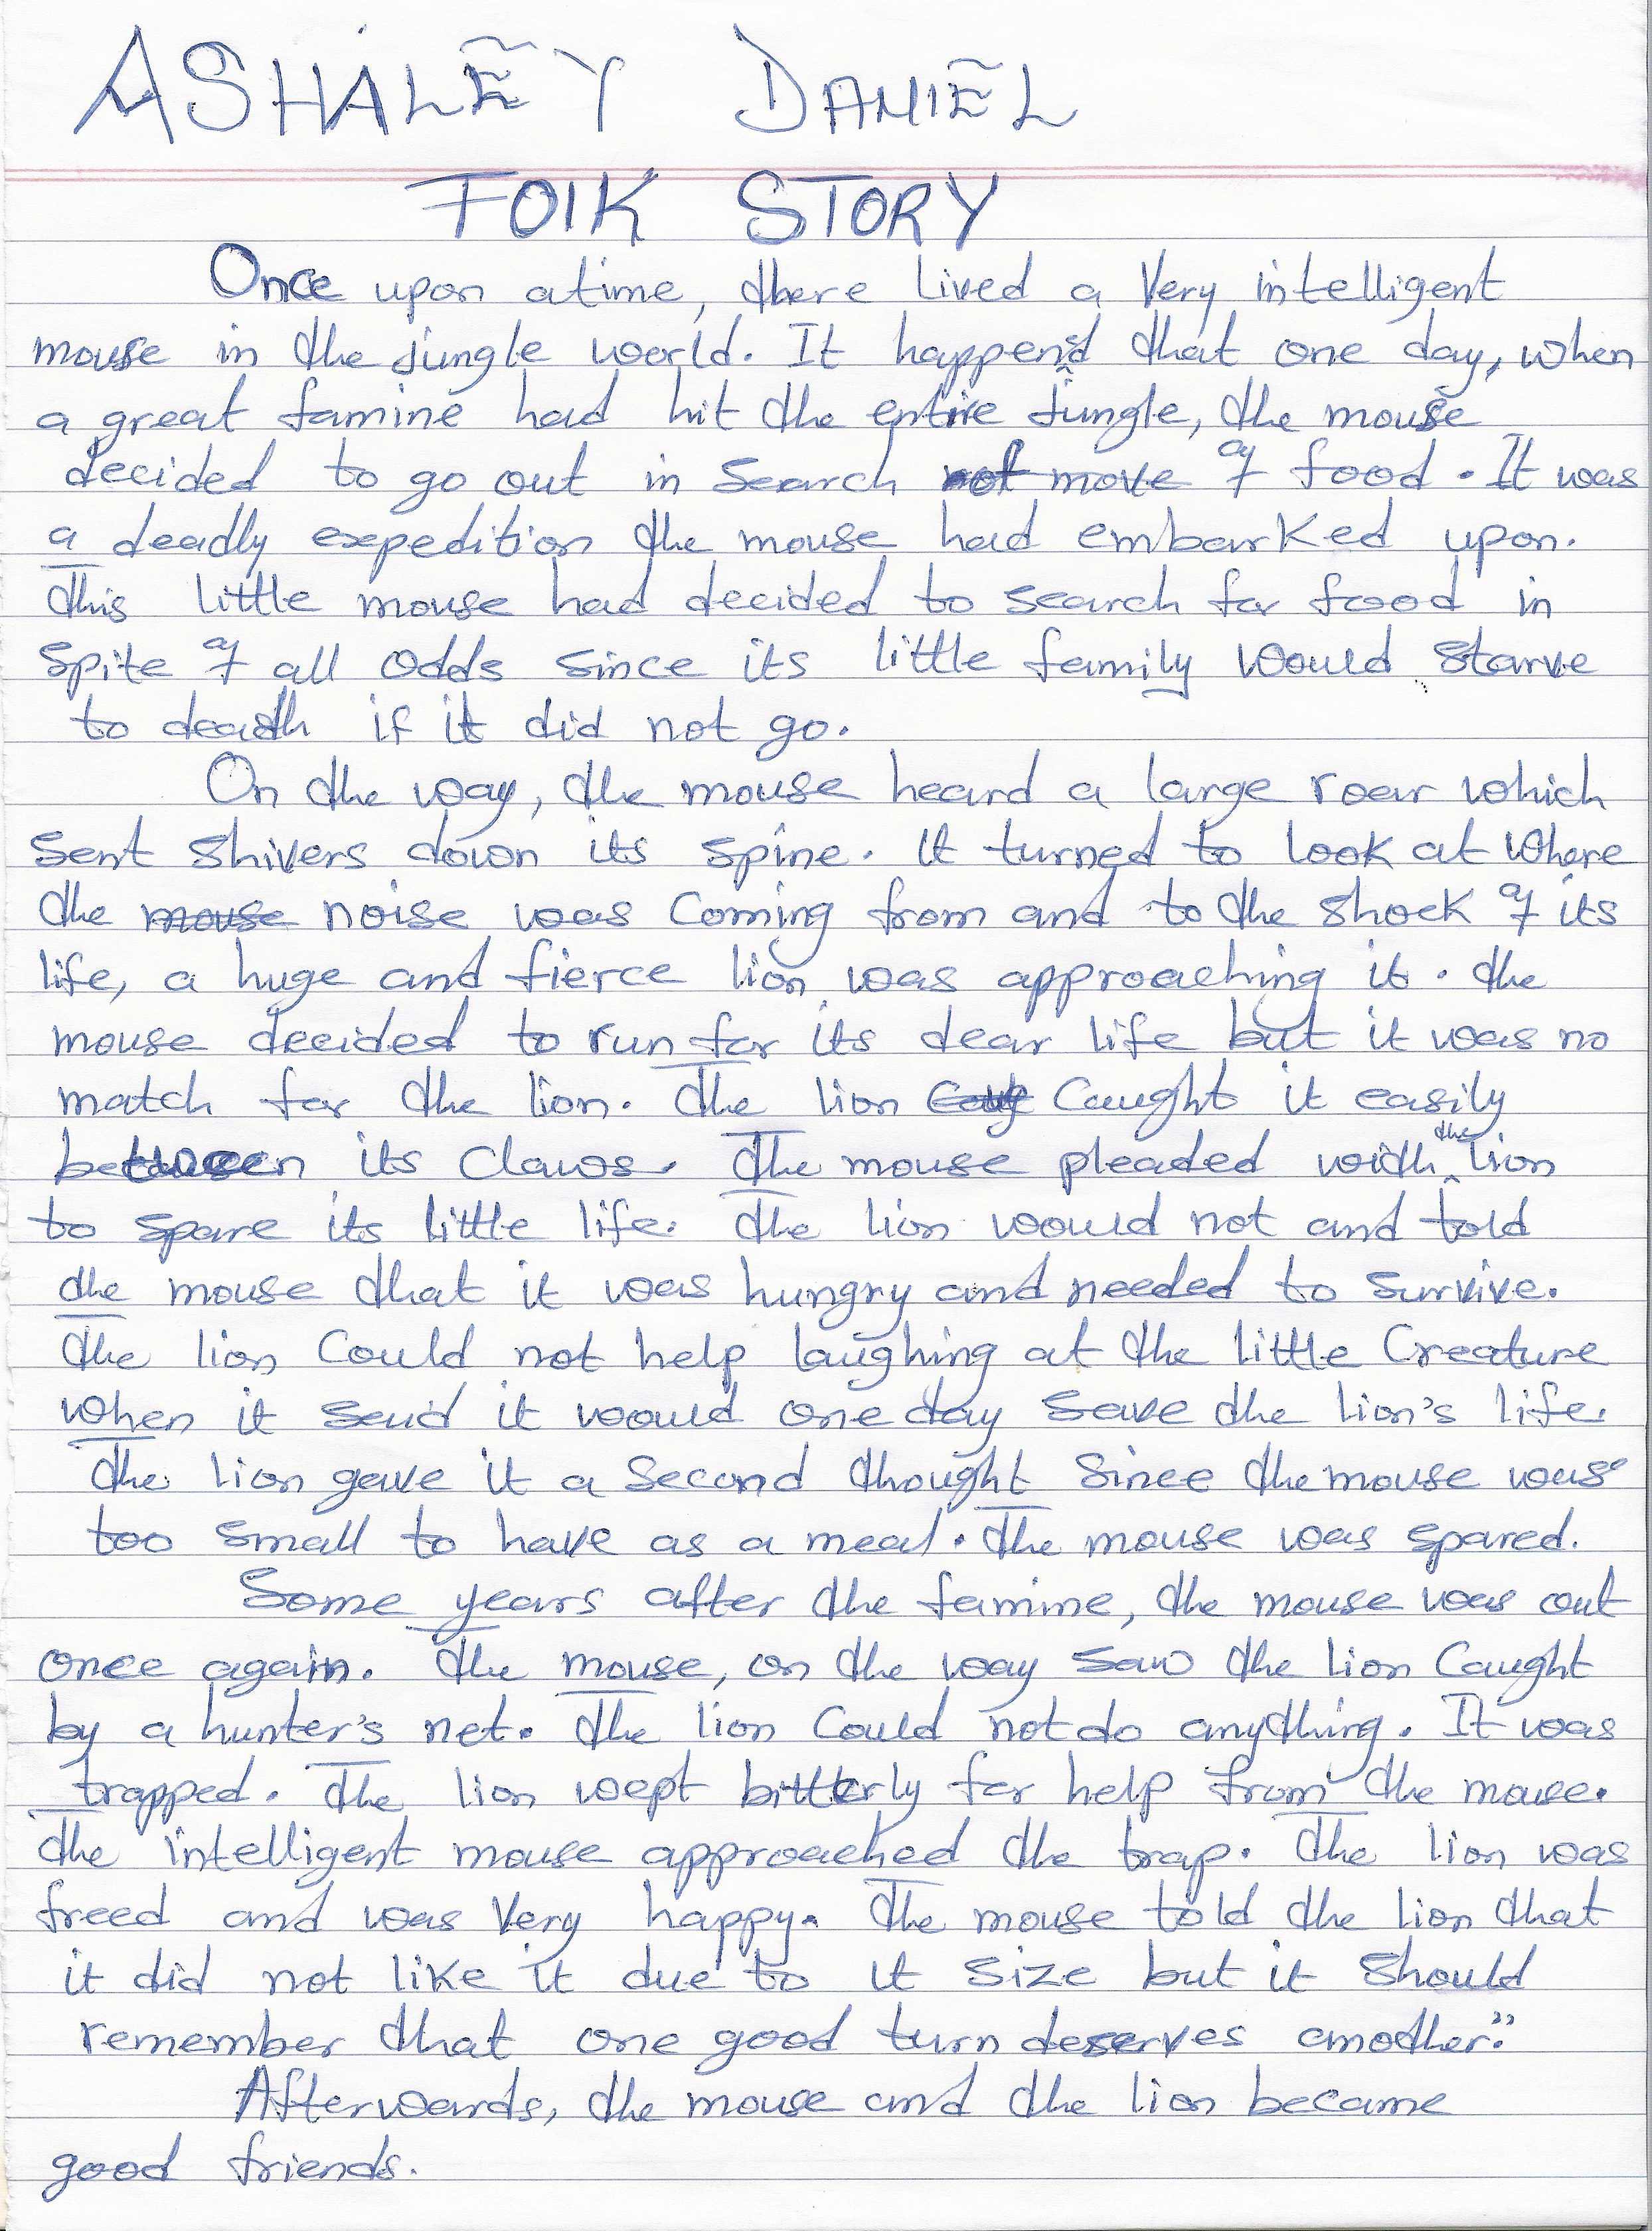 ASHALEY DANIEL
FOlK STORY
Once upon atime, there lived a very intelligent
mouse in the jungle world. It happened that one day, when
a great famine had hit the entire jungle, the mouse
decided to go out in search of food. It was
a deadly expedition the mouse had embarked upon.
This little mouse had decided to search for food in
spite of all odds since its little family would starve
to death if it did not go.
On the way, the mouse heard a large roar which
sent shivers down its spine. It turned to look at where
the noise was coming from and to the shock of its
life, a huge and fierce lion was approaching it. the
mouse decided to run for its dear life but it was no
match for the lion. The lion caught it easily
between its claws. The mouse pleaded with the lion
to spare its little life. The lion would not and told
the mouse that it was hungry and needed to survive.
The lion could not help laughing at the little creature
when it said it would one day save the lion's life.
The lion gave it a second thought since the mouse was
too small to have as a meal. The mouse was spared.
Some years after the famine, the mouse was out
once again. The mouse, on the way saw the lion caught
by a hunter's net. The lion could not do anything. It was
trapped. The lion wept bitterly for help from the mouse.
The intelligent mouse approached the trap. The lion was
freed and was very happy. The mouse told the lion that
it did not like it due to it size but it should
remember that one good turn deserves another."
Afterwards, the mouse and the lion became
good friends.